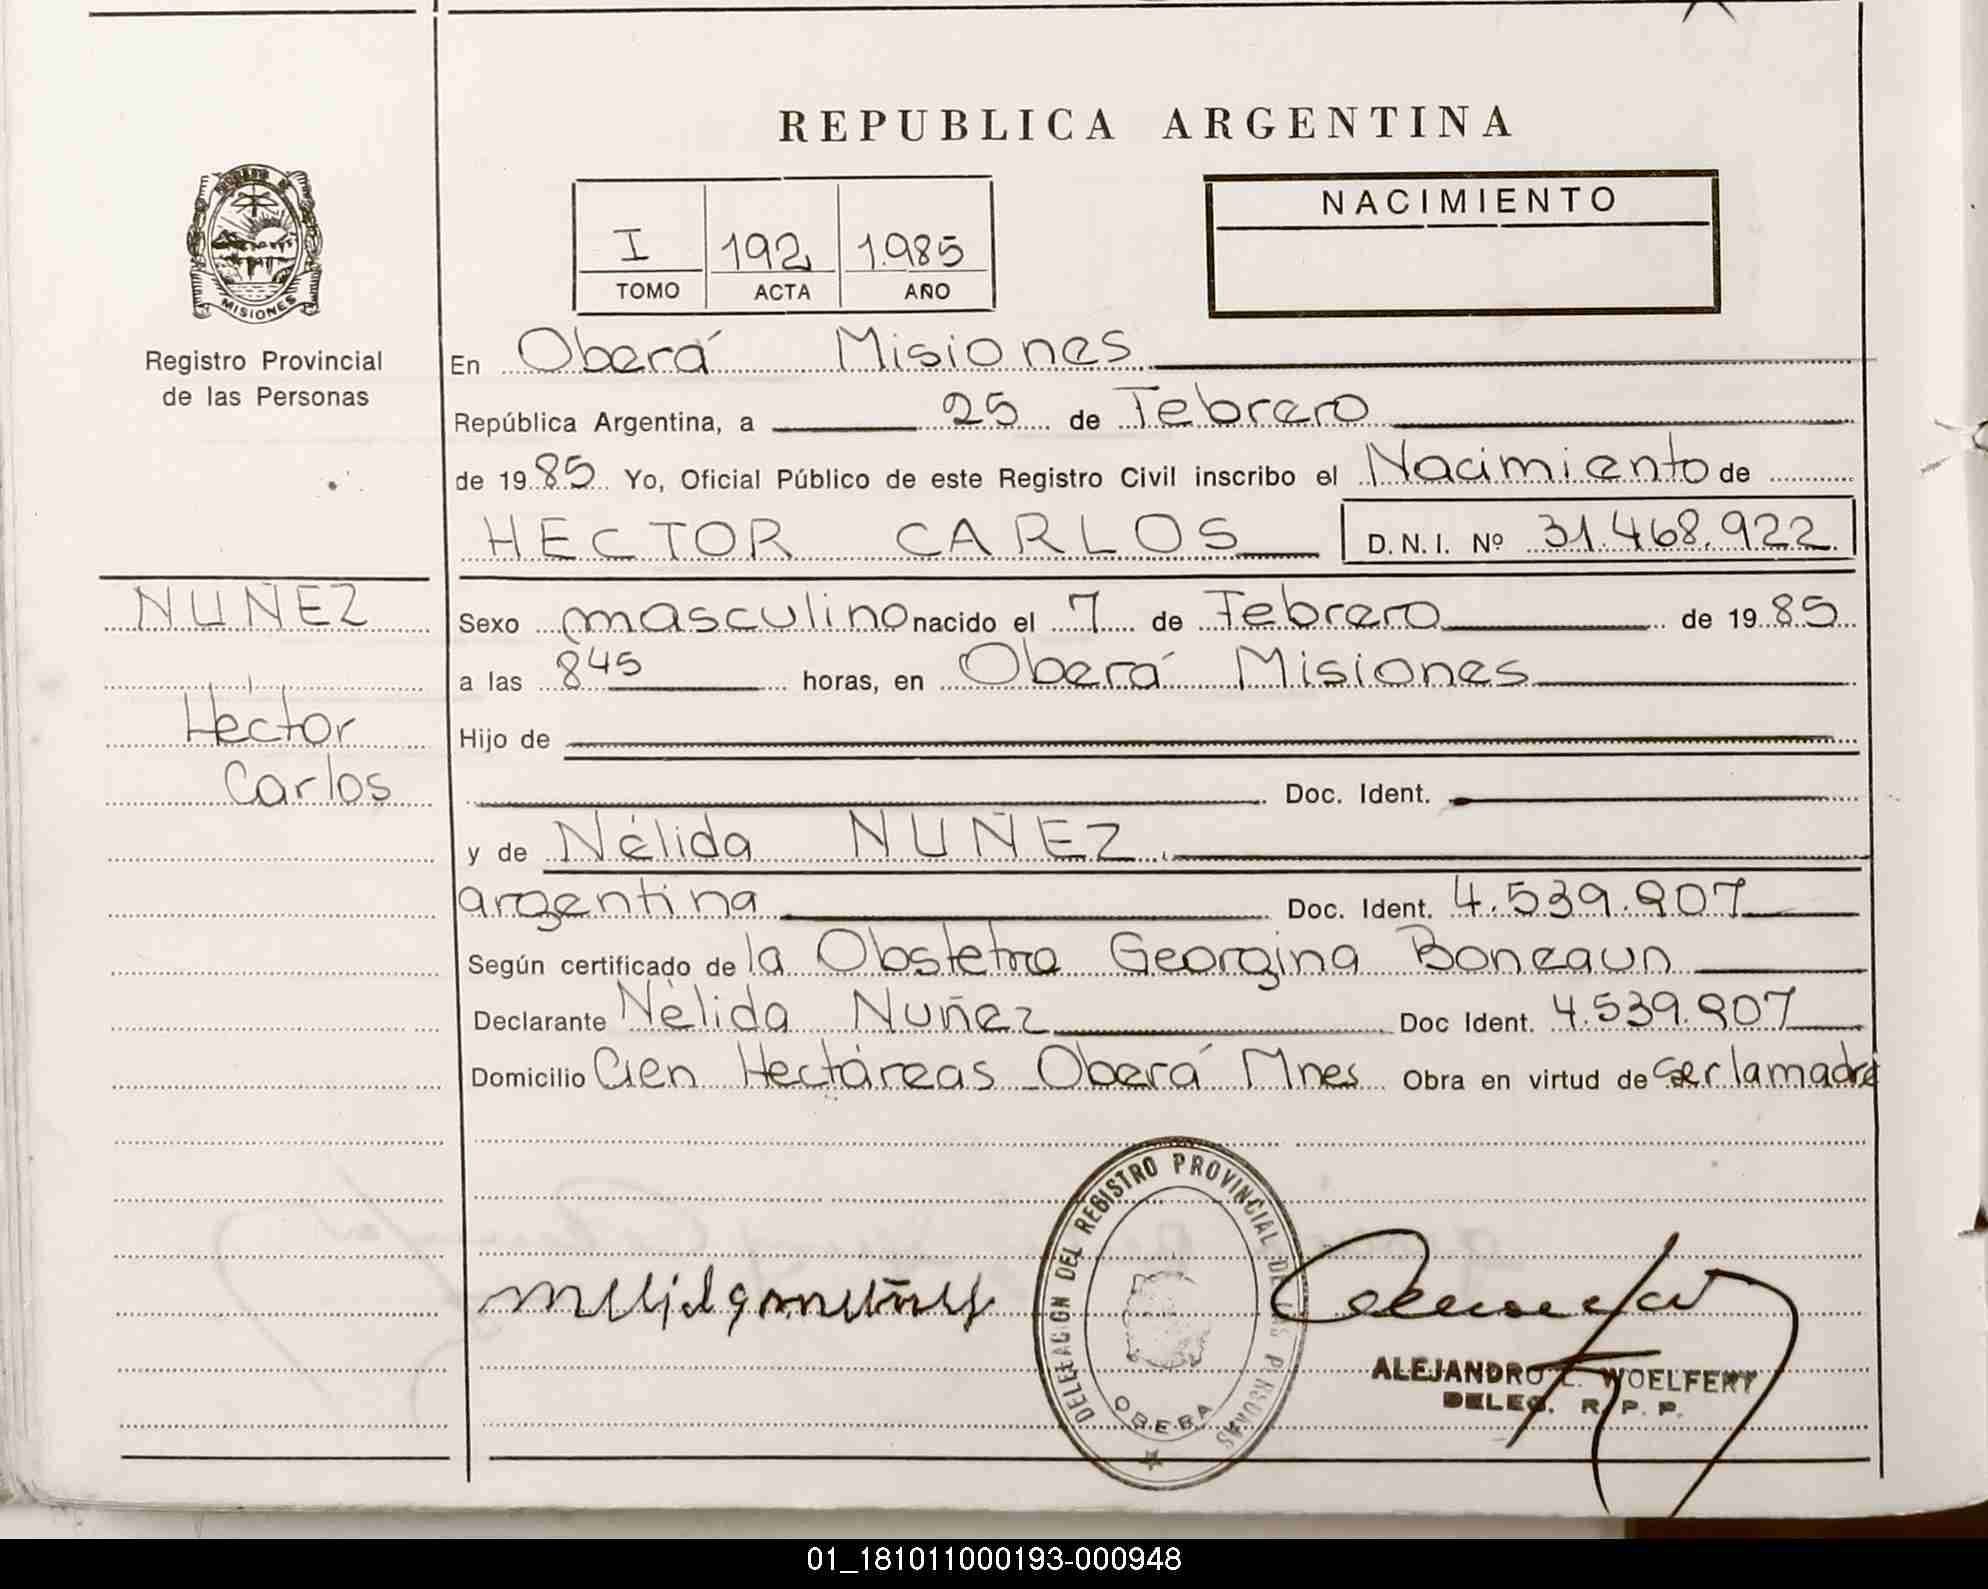 REPUBLICA ARGENTINA
MISIONES
Registro Provincial
de las Personas
I 192 1.985
TOMO ACTA AÑO
NACIMIENTO
En Oberá Misiones
República Argentina, a 25 de Febrero
de 1985 Yo, Oficial Público de este Registro Civil inscribo el Nacimiento de
HECTOR CARLOS D.N.I. Nº 31.468.922
NUÑEZ
Hector
Carlos
Sexo masculino nacido el 7 de Febrero de 1985
a las 8 45 horas, en Oberá Misiones
Hijo de
Doc. Ident.
y de Nélida NUÑEZ
argentina Doc. Ident. 4.539.907
Según certificado de la Obstetra Georgina
Declarante Nélida Nuñez Doc Ident. 4.539.907
Domicilio Cien Hectáreas Oberá Mnes Obra en virtud de ser la madre
DELEGACION DEL REGISTRO PROVINCIAL DE LAS PERSONAS
OBERA
ALEJANDRO E. WOELFERT
DELEG. R. P. P.
01_181011000193-000948